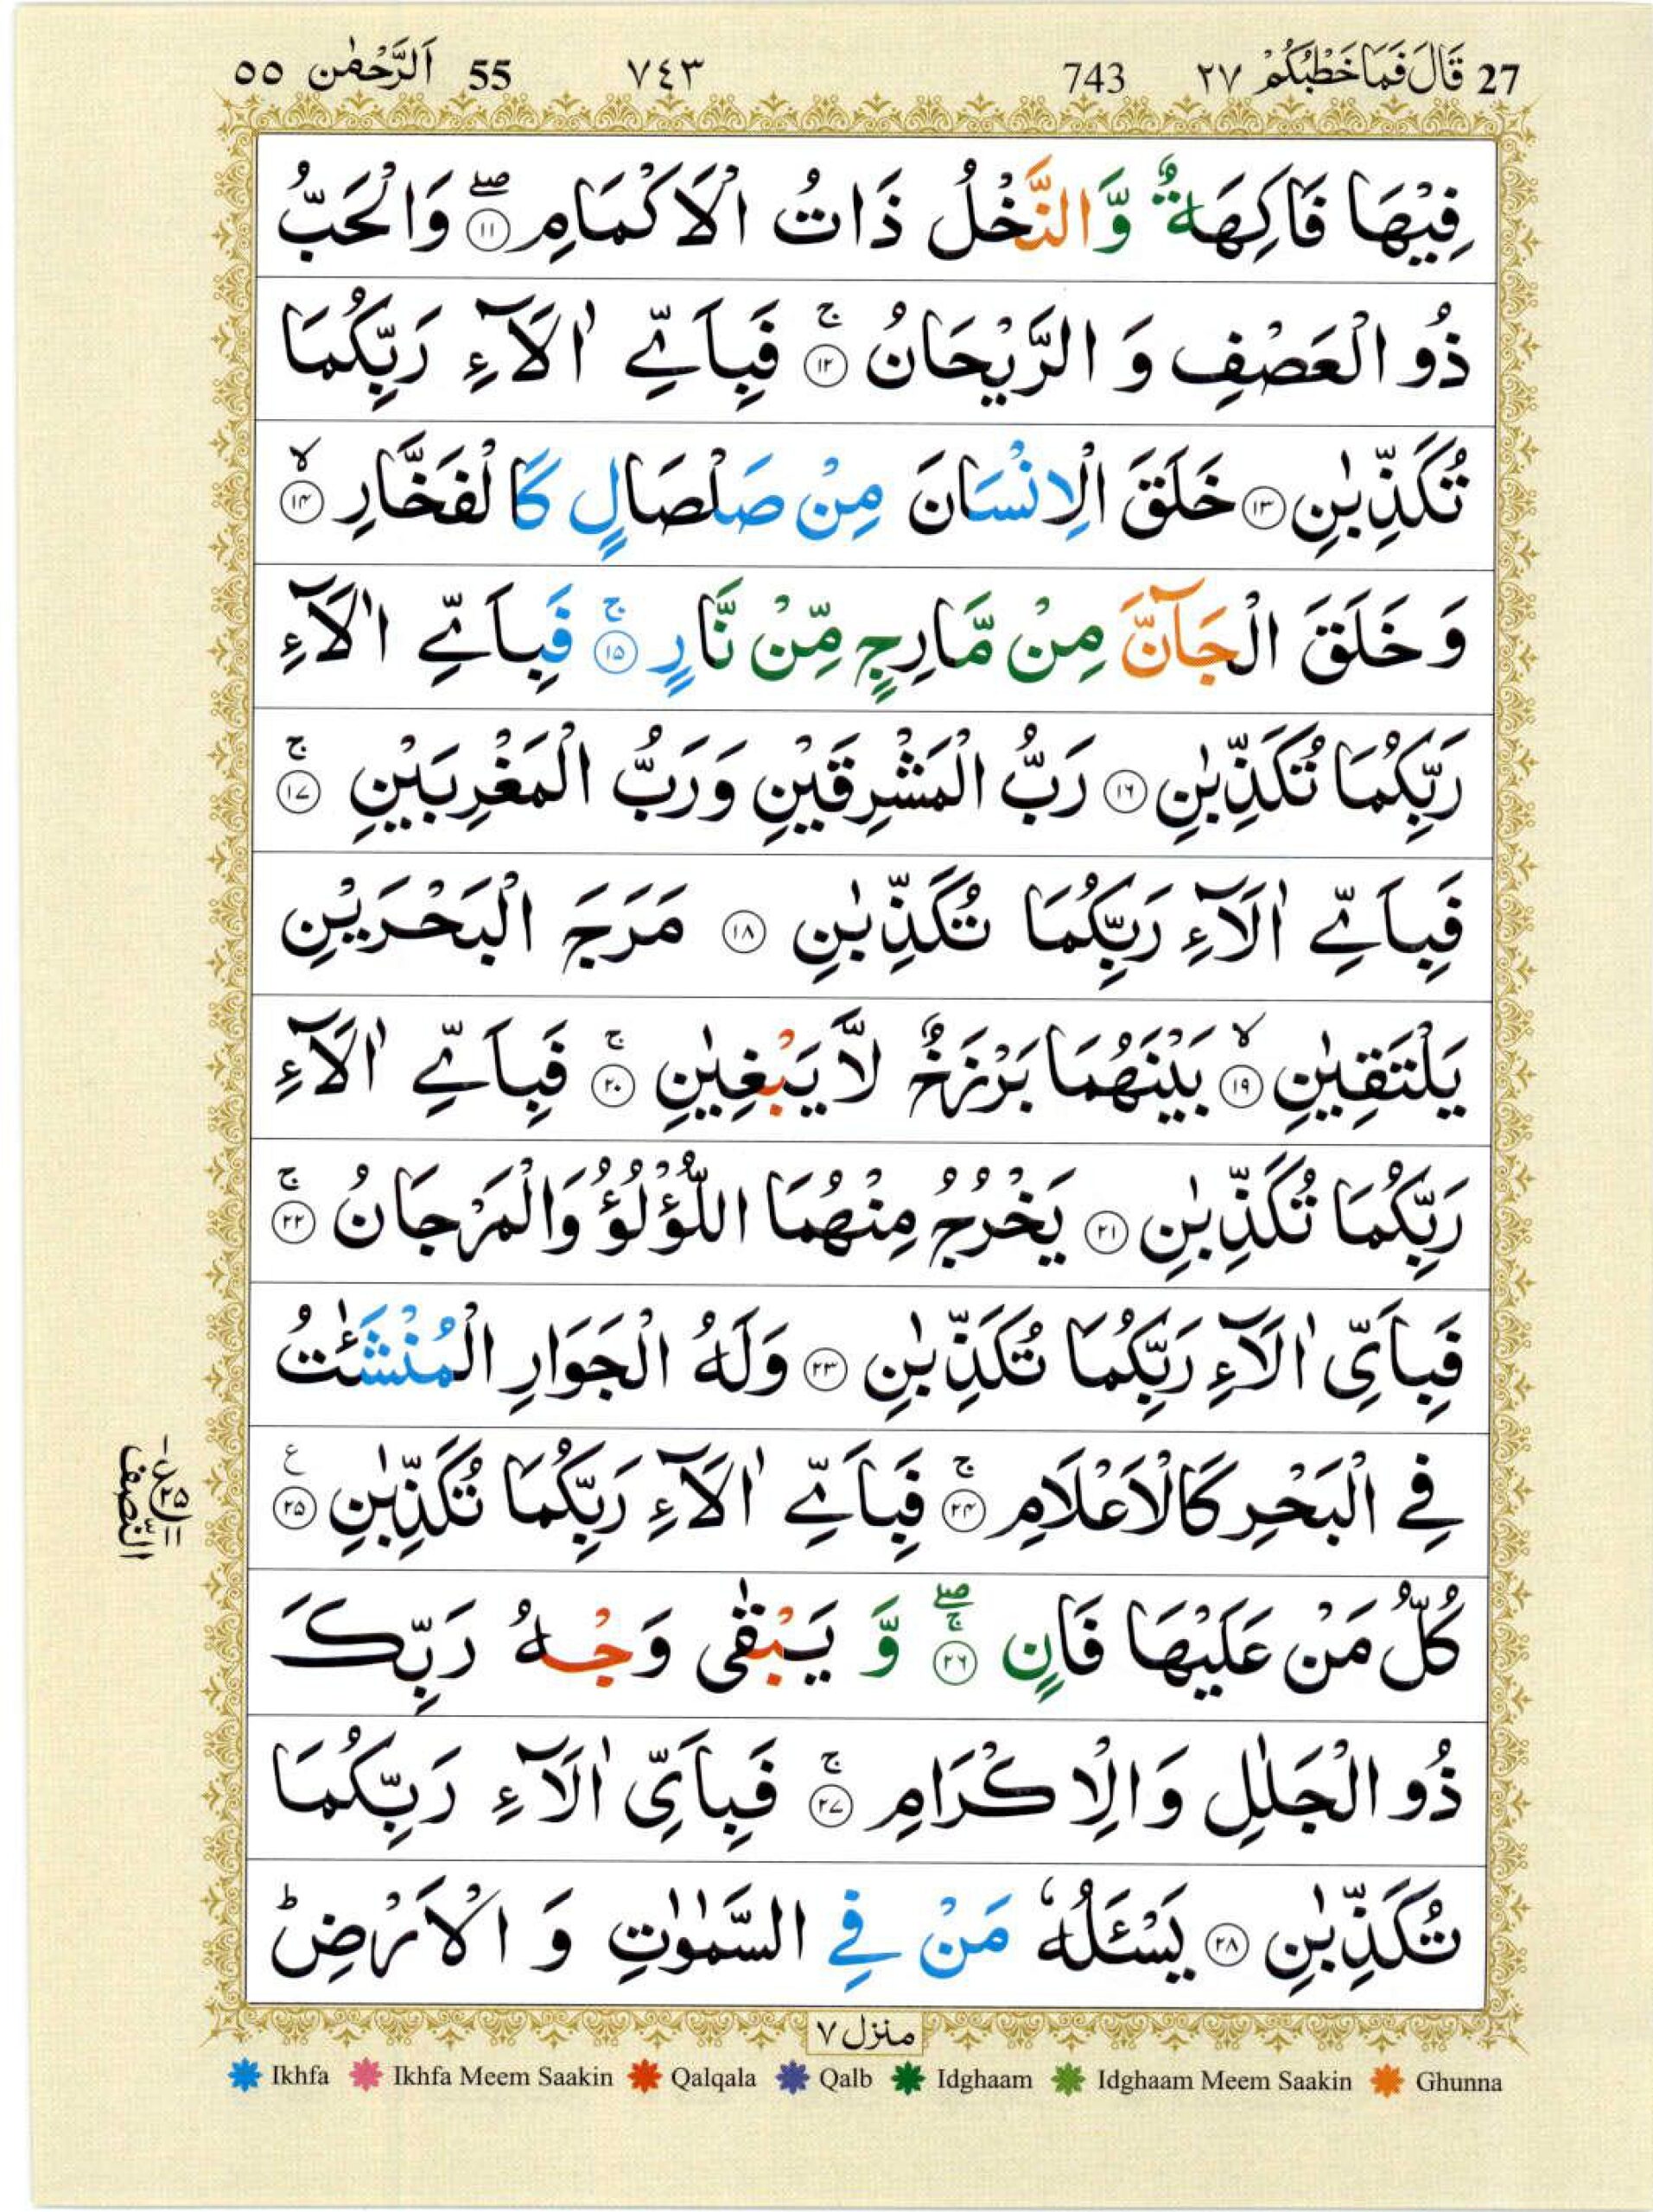 27 قَالَ فَمَا خَطْبُكُمْ ٢٧ 743 ٧٤٣ 55 اَلرَّحْمٰن ٥٥
فِيْهَا فَاكِهَةٌ وَّالنَّخْلُ ذَاتُ الْاَكْمَامِ ۖ ١١ وَالْحَبُّ
ذُو الْعَصْفِ وَ الرَّيْحَانُ ۚ ١٢ فَبِاَىِّ اٰلَآءِ رَبِّكُمَا
تُكَذِّبٰنِ ١٣ خَلَقَ الْاِنْسَانَ مِنْ صَلْصَالٍ كَالْفَخَّارِ ۙ ١٤
وَ خَلَقَ الْجَآنَّ مِنْ مَّارِجٍ مِّنْ نَّارٍ ۚ ١٥ فَبِاَىِّ اٰلَآءِ
رَبِّكُمَا تُكَذِّبٰنِ ١٦ رَبُّ الْمَشْرِقَيْنِ وَرَبُّ الْمَغْرِبَيْنِ ۚ ١٧
فَبِاَىِّ اٰلَآءِ رَبِّكُمَا تُكَذِّبٰنِ ١٨ مَرَجَ الْبَحْرَيْنِ
يَلْتَقِيٰنِ ۙ ١٩ بَيْنَهُمَا بَرْزَخٌ لَّا يَبْغِيٰنِ ۚ ٢٠ فَبِاَىِّ اٰلَآءِ
رَبِّكُمَا تُكَذِّبٰنِ ٢١ يَخْرُجُ مِنْهُمَا اللُّؤْلُؤُ وَالْمَرْجَانُ ۚ ٢٢
فَبِاَىِّ اٰلَآءِ رَبِّكُمَا تُكَذِّبٰنِ ٢٣ وَلَهُ الْجَوَارِ الْمُنْشَئٰتُ
فِى الْبَحْرِ كَالْاَعْلَامِ ۚ ٢٤ فَبِاَىِّ اٰلَآءِ رَبِّكُمَا تُكَذِّبٰنِ ع ٢٥
كُلُّ مَنْ عَلَيْهَا فَانٍ ۖۚ ٢٦ وَّ يَبْقٰى وَجْهُ رَبِّكَ
ذُو الْجَلٰلِ وَالْاِكْرَامِ ۚ ٢٧ فَبِاَىِّ اٰلَآءِ رَبِّكُمَا
تُكَذِّبٰنِ ٢٨ يَسْئَلُهٗ مَنْ فِى السَّمٰوٰتِ وَ الْاَرْضِ ؕ
النّصف
منزل ٧
Ikhfa Ikhfa Meem Saakin Qalqala Qalb Idghaam Idghaam Meem Saakin Ghunna